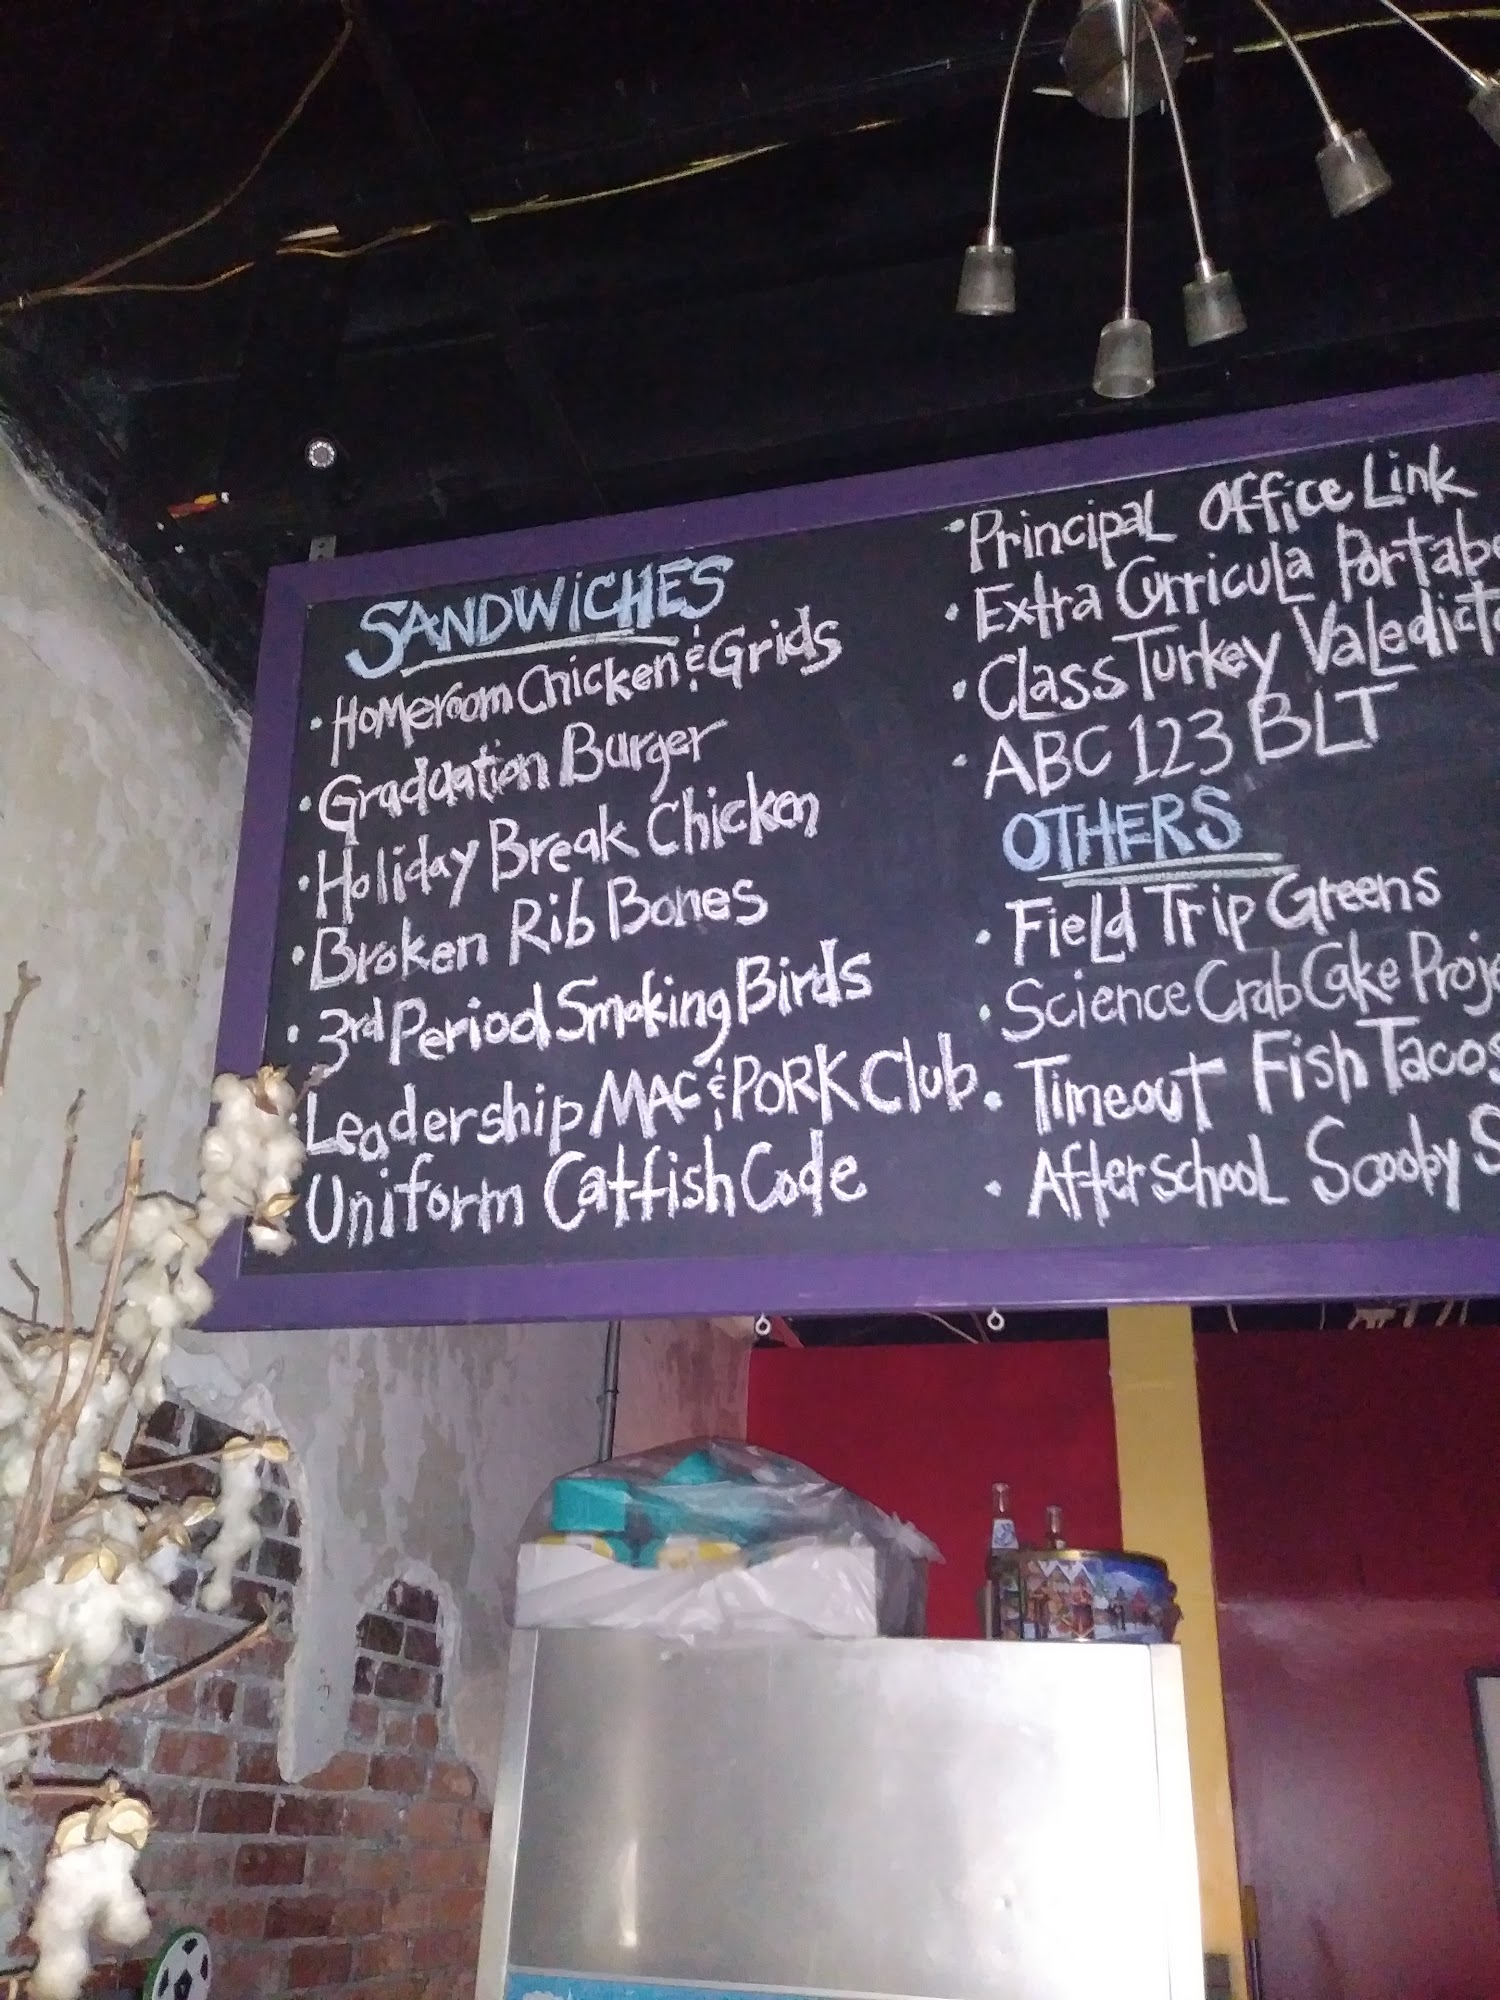 SANDWICHES
• Homeroom Chicken & Grids
• Graduation Burger
• Holiday Break Chicken
• Broken Rib Bones
• 3rd Period Smoking Birds
Leadership MAC & PORK Club
Uniform Catfish Code
• Principal Office Link
• Extra Curricula Portabe
• Class Turkey Valedicto
• ABC 123 BLT
OTHERS
• Field Trip Greens
• Science Crab Cake Proje
• Timeout Fish Tacos
• Afterschool Scooby S